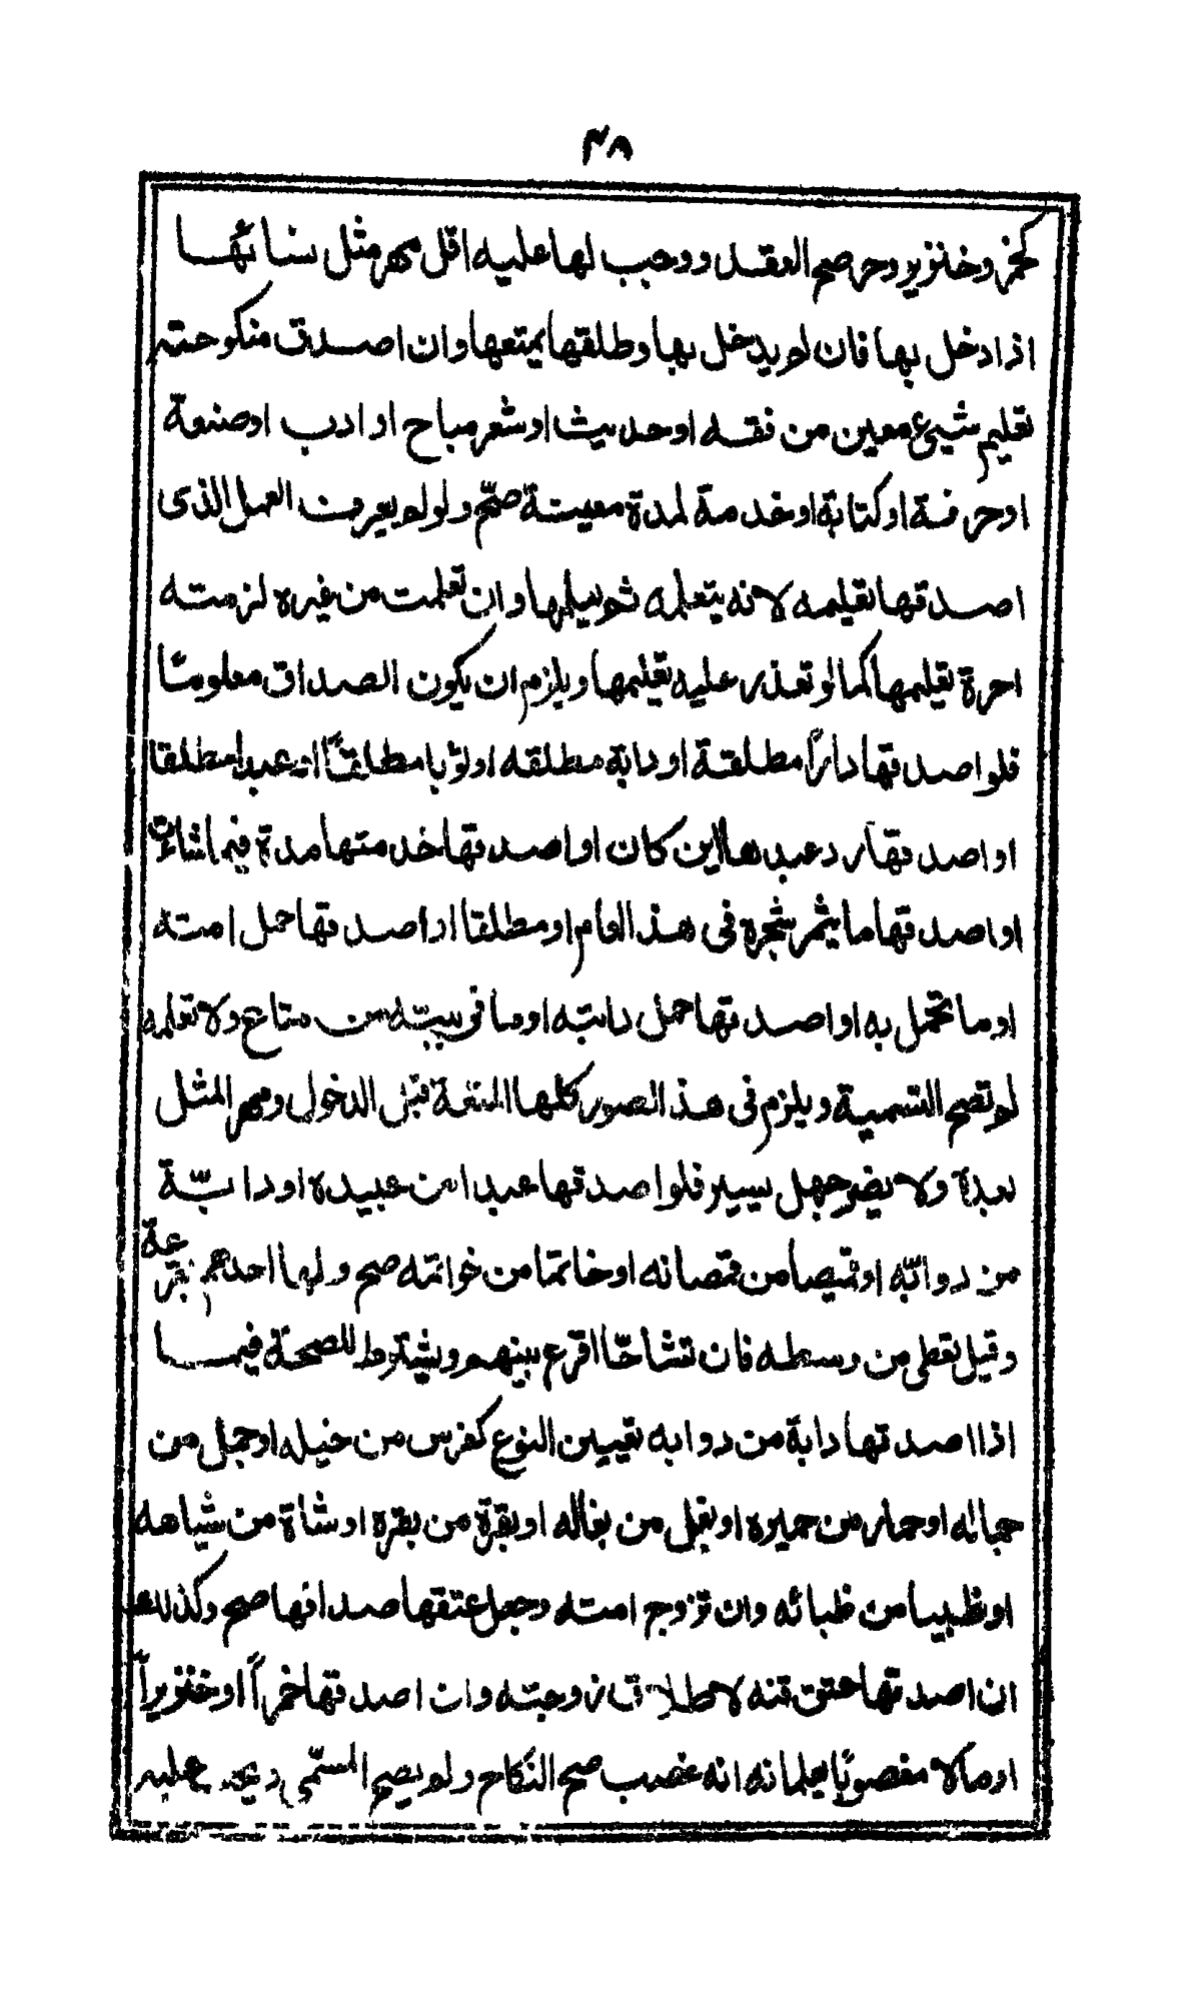 ٣٨
كخمر وخنزير وحر صح العقد ووجب لها عليه اقل مهر مثل نسائها
اذا دخل بها فان لم يدخل بها وطلقها يمتعها وان اصدق منكوحته
تعليم شيئ معين من فقه او حديث او شعر مباح او ادب او صنعة
او حرفة او كتابة او خدمة لمدة معينة صحّ ولو لم يعرف العمل الذى
اصدقها تعليمه لانه يتعلمه ثم يعلمها وان تعلمت من غيره لزمته
اجرة تعليمها كما لو تعذر عليه تعليمها ويلزم ان يكون الصداق معلومًا
فلو اصدقها داراً مطلقة او دابة مطلقه او ثوبا مطلقًا او عبدا مطلقا
او اصدقها رد عبدها اين كان او اصدقها خدمتها مدة فيما شاءت
او اصدقها ما يثمر شجره فى هذ العام او مطلقا او اصدقها حمل امته
او ما تحمل به او اصدقها حمل دابته او ما فى بيته من متاع ولا تعلمه
لم تصح التسمية ويلزم فى هذ الصور كلها المتعة قبل الدخول ومهر المثل
بعدة ولا يضر جهل يسير فلو اصدقها عبدا من عبيده او دابّة
من دوابّه او قميصا من قمصانه او خاتما من خواتمه صح ولها احدهم بقرعة
وقيل تعطى من وسطه فان تشاحّا اقرع بينهم ويشترط للصحة فيما
اذا اصدقها دابة من دوابه تعيين النوع كفرس من خيله او جمل من
جماله او حمار من حميره او بغل من بغاله او بقرة من بقره او شاة من شياهه
او ظبيا من ظبائه وان تزوج امته وجعل عتقها صداقها صح وكذلك
ان اصدقها عتق قنه لا طلاق زوجته وان اصدقها خمراً او خنزيراً
او مالا مغصوبًا يعلمانه انه غصب صح النكاح ولم يصح المسمّى عليه